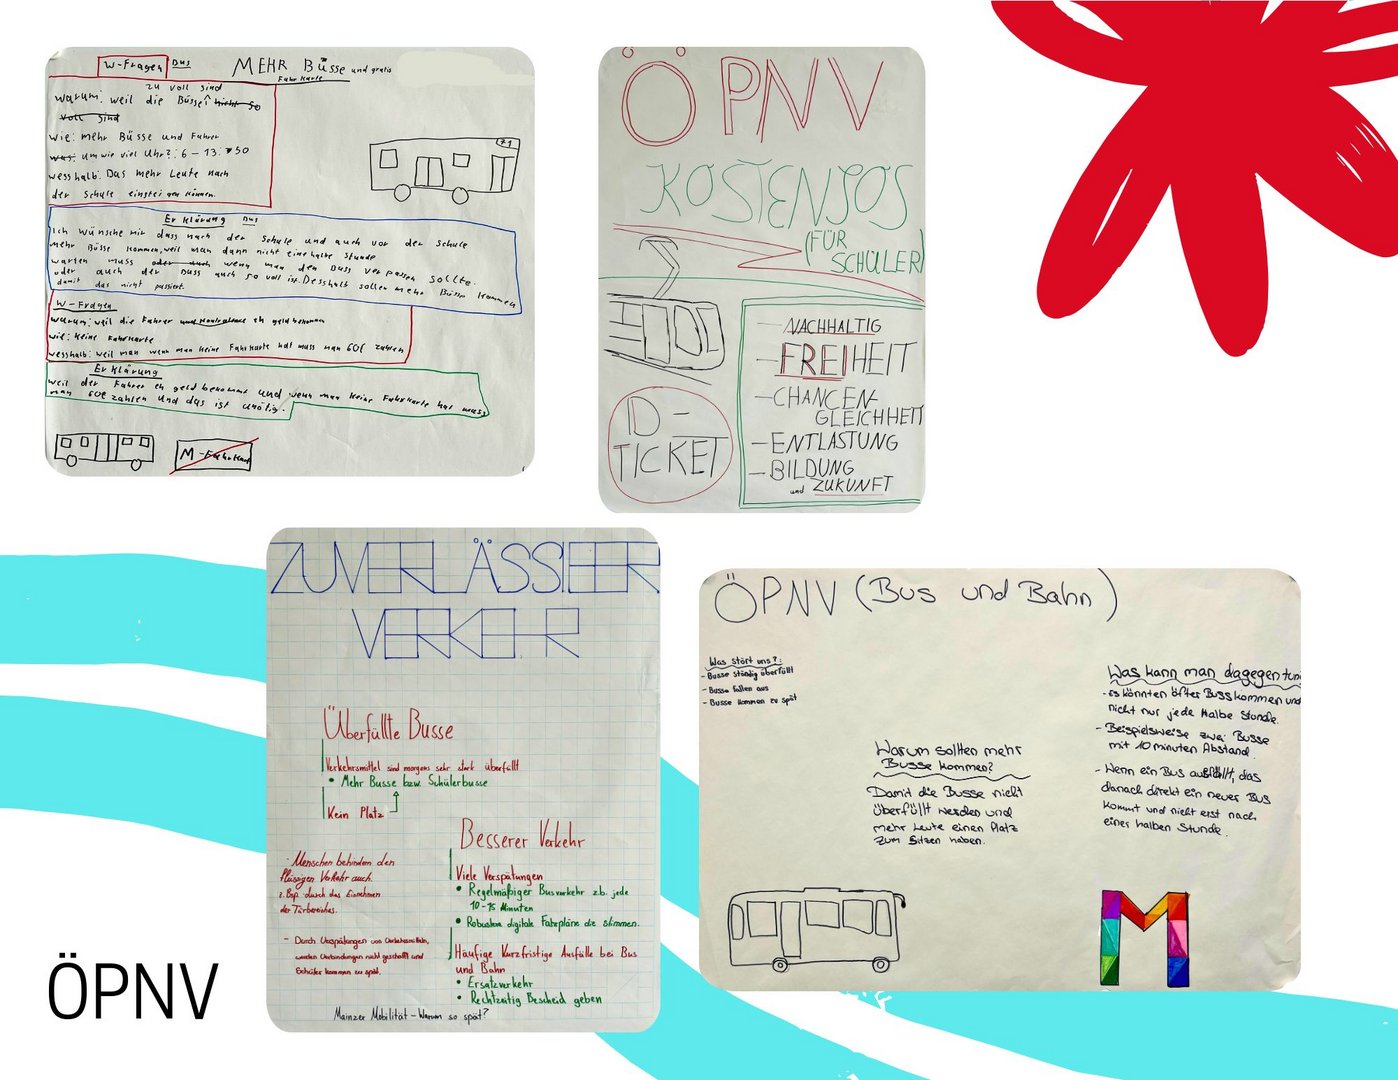 W-Fragen Bus
MEHR Büsse und gratis
Fahrkarte
zu voll sind
warum: weil die Büsse nicht so
voll sind
wie: mehr Büsse und Fahrer
was: um wie viel Uhr?: 6-13:50
wesshalb: Das mehr Leute nach
der Schule einsteigen können.
71
Erklärung Bus
Ich wünsche mir dass nach der Schule und auch vor der Schule
mehr Büsse kommen, weil man dann nicht eine halbe Stunde
warten muss oder auch wenn man den Buss verpassen sollte.
oder auch der Buss auch so voll ist. Desshalb sollen mehr Büsse kommen
damit das nicht passiert.
W-Fragen
warum: weil die Fahrer und eh geld bekommen
wie: Keine Fahrkarte
wesshalb: weil man wenn man keine Fahrkarte hat muss man 60€ zahlen
Erklärung
weil der Fahrer eh geld bekommt und wenn man keine Fahrkarte hat muss
man 60€ zahlen und das ist unötig.
M-Fahrkart
ÖPNV
KOSTENLOS
(FÜR
SCHÜLER)
D-
TICKET
- NACHHALTIG
- FREIHEIT
- CHANCEN-
GLEICHHEIT
- ENTLASTUNG
- BILDUNG
und ZUKUNFT
ZUVERLÄSSIGER
VERKEHR
Überfüllte Busse
Verkehrsmittel sind morgens sehr stark überfüllt
• Mehr Busse bzw. Schülerbusse
Kein Platz
- Menschen behindern den
flüssigen Verkehr auch.
z. Bsp. durch das Einnehmen
der Türbereiches.
- Durch Verspätungen von Verkehrsmitteln,
werden Verbindungen nicht geschafft und
Schüler kommen zu spät.
Besserer Verkehr
Viele Verspätungen
• Regelmäßiger Busverkehr z.b. jede
10-15 Minuten
• Robustere digitale Fahrpläne die stimmen.
Häufige Kurzfristige Ausfälle bei Bus
und Bahn
• Ersatzverkehr
• Rechtzeitig Bescheid geben
Mainzer Mobilität - Warum so spät?
ÖPNV (Bus und Bahn)
Was stört uns?:
- Busse ständig überfüllt
- Busse fallen aus
- Busse kommen zu spät
Warum sollten mehr
Busse kommen?
Damit die Busse nicht
überfüllt werden und
mehr Leute einen Platz
zum Sitzen haben.
Was kann man dagegen tun
- es könnten öfter Buss kommen und
nicht nur jede Halbe Stunde.
- Beispielsweise zwei Busse
mit 10 minuten Abstand
- Wenn ein Bus ausfällt, das
danach direkt ein neuer Bus
kommt und nicht erst nach
einer halben Stunde.
M
ÖPNV